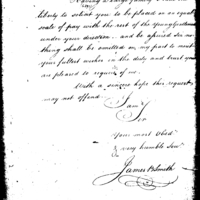 likely to
to be placed on an equal
scale of pay with the rest of the Young Gentlemen
under your direction, and be assured no-
thing shall be omitted on my part to meet
your fullest wishes in the duty and trust you
are pleased to request of me.
With a sincere hope this request
may not offend
I am
Sir
Your most Obed
& very humble Serv
James B Smith